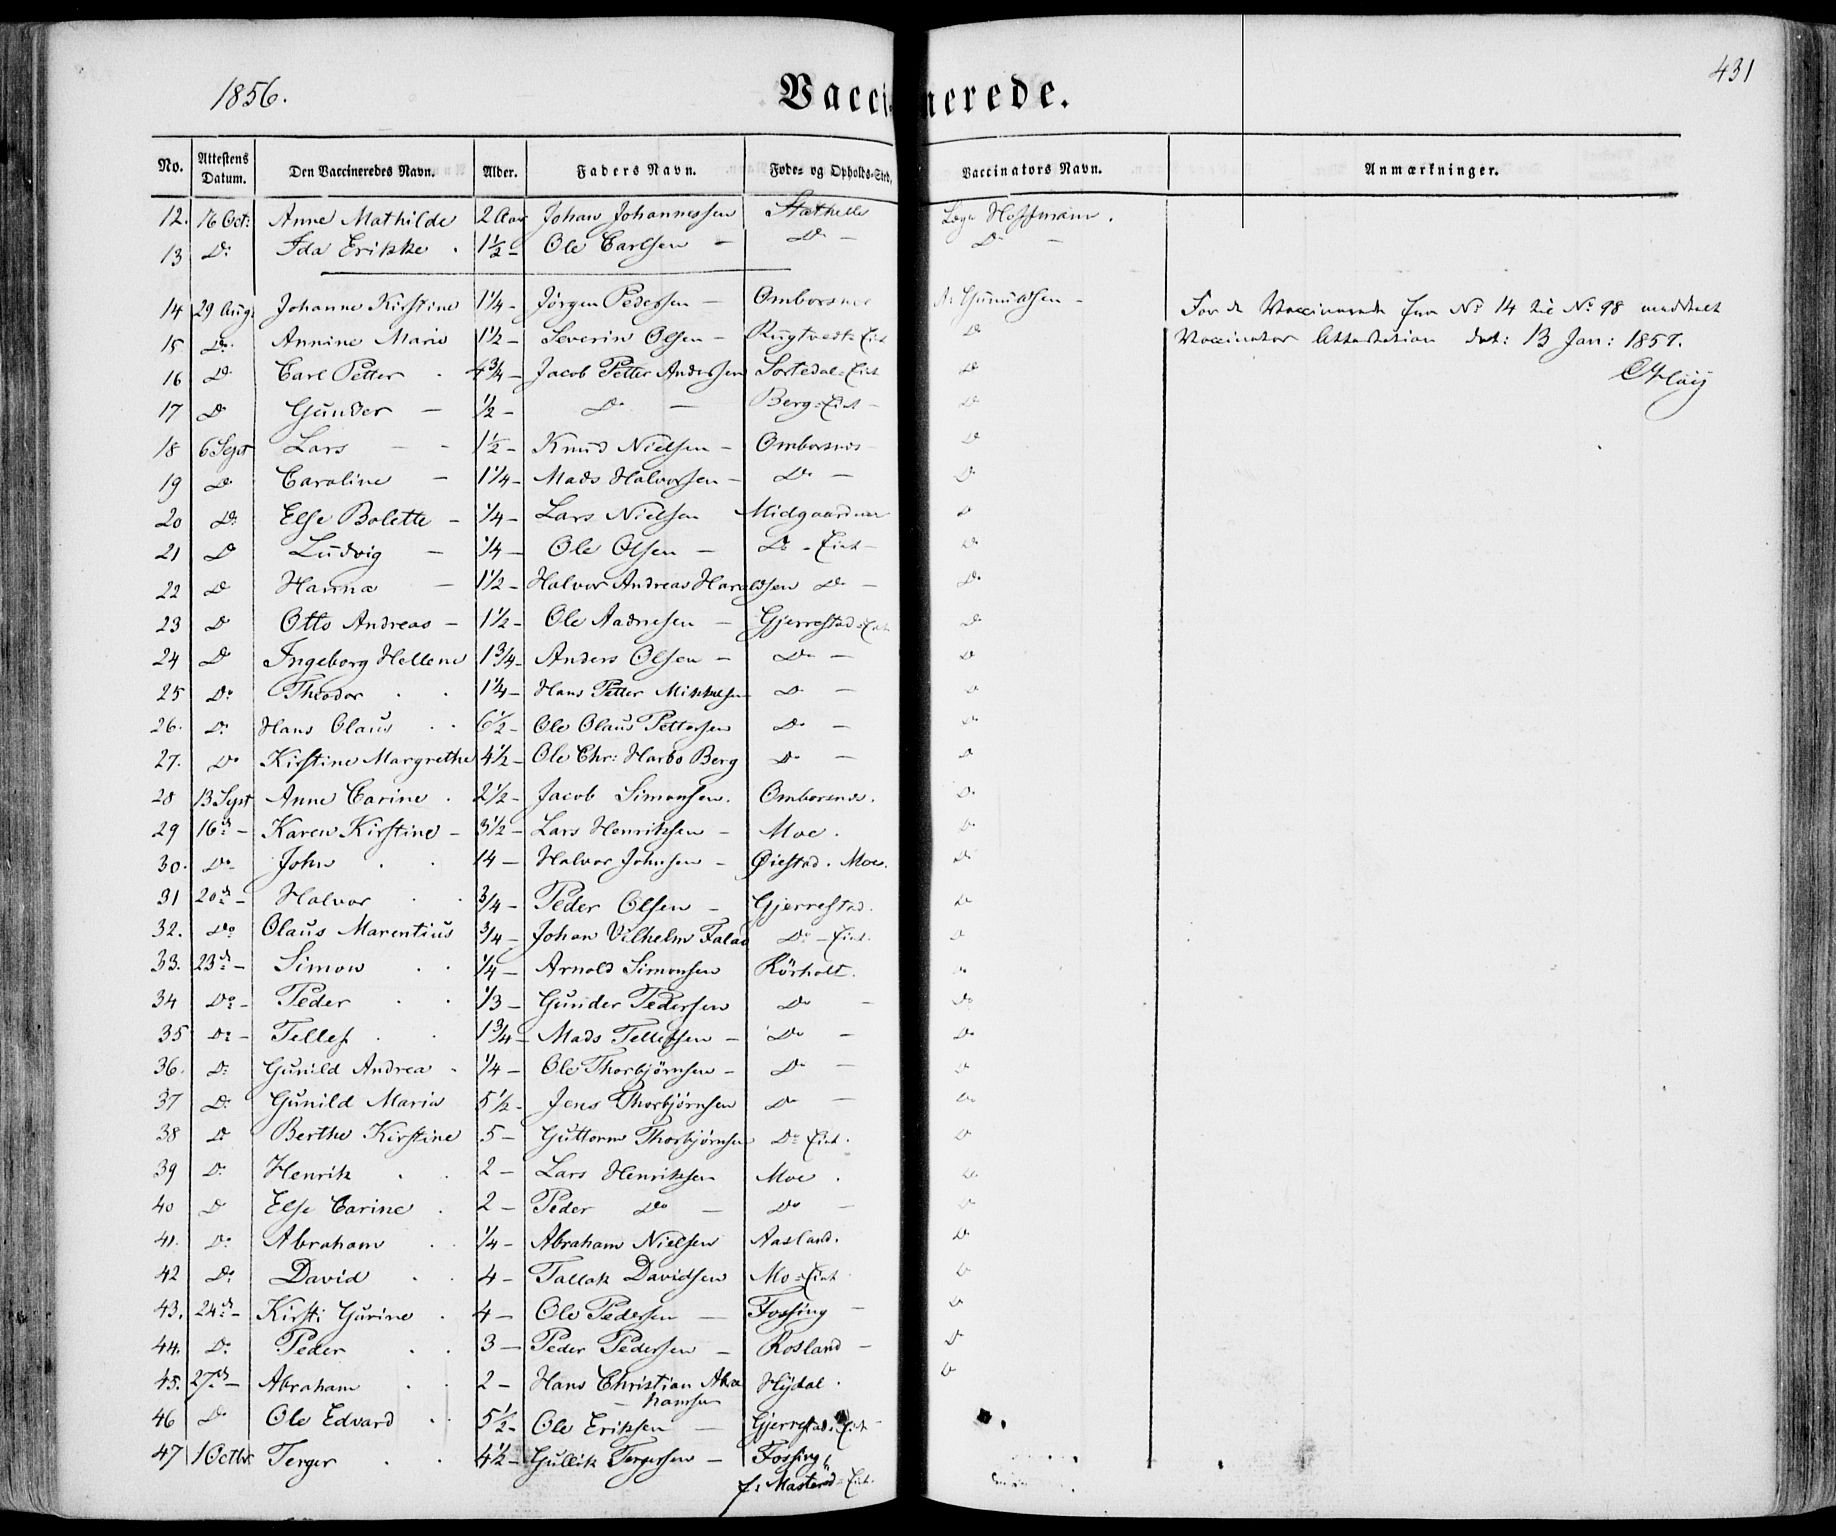 1856. Vaccinerede. 431
No. Attestens Datum. Den Vaccineredes Navn. Alder. Faders Navn. Føde- og Opholds-Sted. Vaccinators Navn. Anmærkninger.
12. 16 Oct: Anne Mathilde 2 Aar Johan Johannessen Stathelle Læge Hoffmann.
13 Do Ida Erikke . 1 1/2 - Ole Carlsen - Do - Do -
14 29 Aug. Johanne Kirstine 1 1/4 - Jörgen Pedersen - Omborsnes - For de Vaccinerede fra No 14 til No 98 meddelt
15 Do Annine Marie 1 1/2 - Severin Olsen - Rugtvedt= Eiet Do Vaccinator Attestation dat: 13 Jan: 1857.
16 Do Carl Petter . 4 3/4 - Jacob Petter Anderssen Sortedal= Eiet Do
17 Do Gunder - 1/2 - Do - Berg= Eiet - Do
18 6 Sept Lars - - 1 1/2 - Knud Nielsen - Omborsnes Do
19 Do Caroline - 1 1/4 - Mads Halvorsen - Do - Do
20 Do Else Bolette - 1/4 - Lars Nielsen Midgaarden Do
21 Do Ludvig - 1/4 - Ole Olsen - Do - Eiet - Do
22 Do Hanna - 1 1/2 - Halvor Andreas Haraldsen Do - Do
23 Do Otto Andreas - 1 1/2 - Ole Aadnesen - Gjerrestad= Eiet Do
24 Do Ingeborg Hellene 1 3/4 - Anders Olsen - Do - Do
25 Do Theodor . . 1 1/4 - Hans Petter Mikkelsen Do - Do
26. Do Hans Olaus . . 6 1/2 - Ole Olaus Pettersen Do - Do
27. Do Kirstine Margrethe 4 1/2 - Ole Chr: Harbo Berg Do - Do
28 13 Sept Anne Carine . 2 1/2 - Jacob Simonsen. Omborsnes. Do
29 16de - Karen Kirstine - 3 1/2 - Lars Henriksen - Moe . Do
30. Do John . . 14 - Halvor Johnsen - Øiestad. Moe. Do
31 20de - Halvor . . 3/4 - Peder Olsen - Gjerrestad. Do
32. Do Olaus Marentius 3/4 - Johan Vilhelm Do - Eiet. Do
33. 23de - Simon . . 1/4 - Arnold Simonsen Rörholt. Do
34 Do - Peder . . 1/3 - Gunder Pedersen Do - Do
35 Do - Tellef . . 1 3/4 - Mads Tellefsen - Do - Do
36. Do Gunild Andrea . 1/4 - Ole Thorbjörnsen - Do - Do
37 Do Gunild Maria 5 1/2 - Jens Thorbjørnsen Do - Do
38 Do Berthe Kirstine 5 - Guttorm Thorbjørnsen Do Eiet. Do
39 Do Henrik . . 2 - Lars Henriksen Moe . Do
40 Do Else Carine . 2 - Peder Do - Do - Do
41. Do Abraham . . 1/4 - Abraham Nielsen Aasland. Do
42 Do David . . 4 - Tallak Davidsen Mo= Eiet Do
43. 24de - Kirsti Gurine . 4 - Ole Pedersen - Fossing - Do
44. Do Peder . . 3 - Peder Pedersen - Rosland - Do
45. 27de - Abraham . . 2 - Hans Christian Abra Hydal . Do
- hamsen
46 Do Ole Edvard . . 5 1/2 - Ole Eriksen - Gjerrestad= Eiet
47 1 Octbr Terger . . 4 1/2 - Gullik Tergersen - Fossing